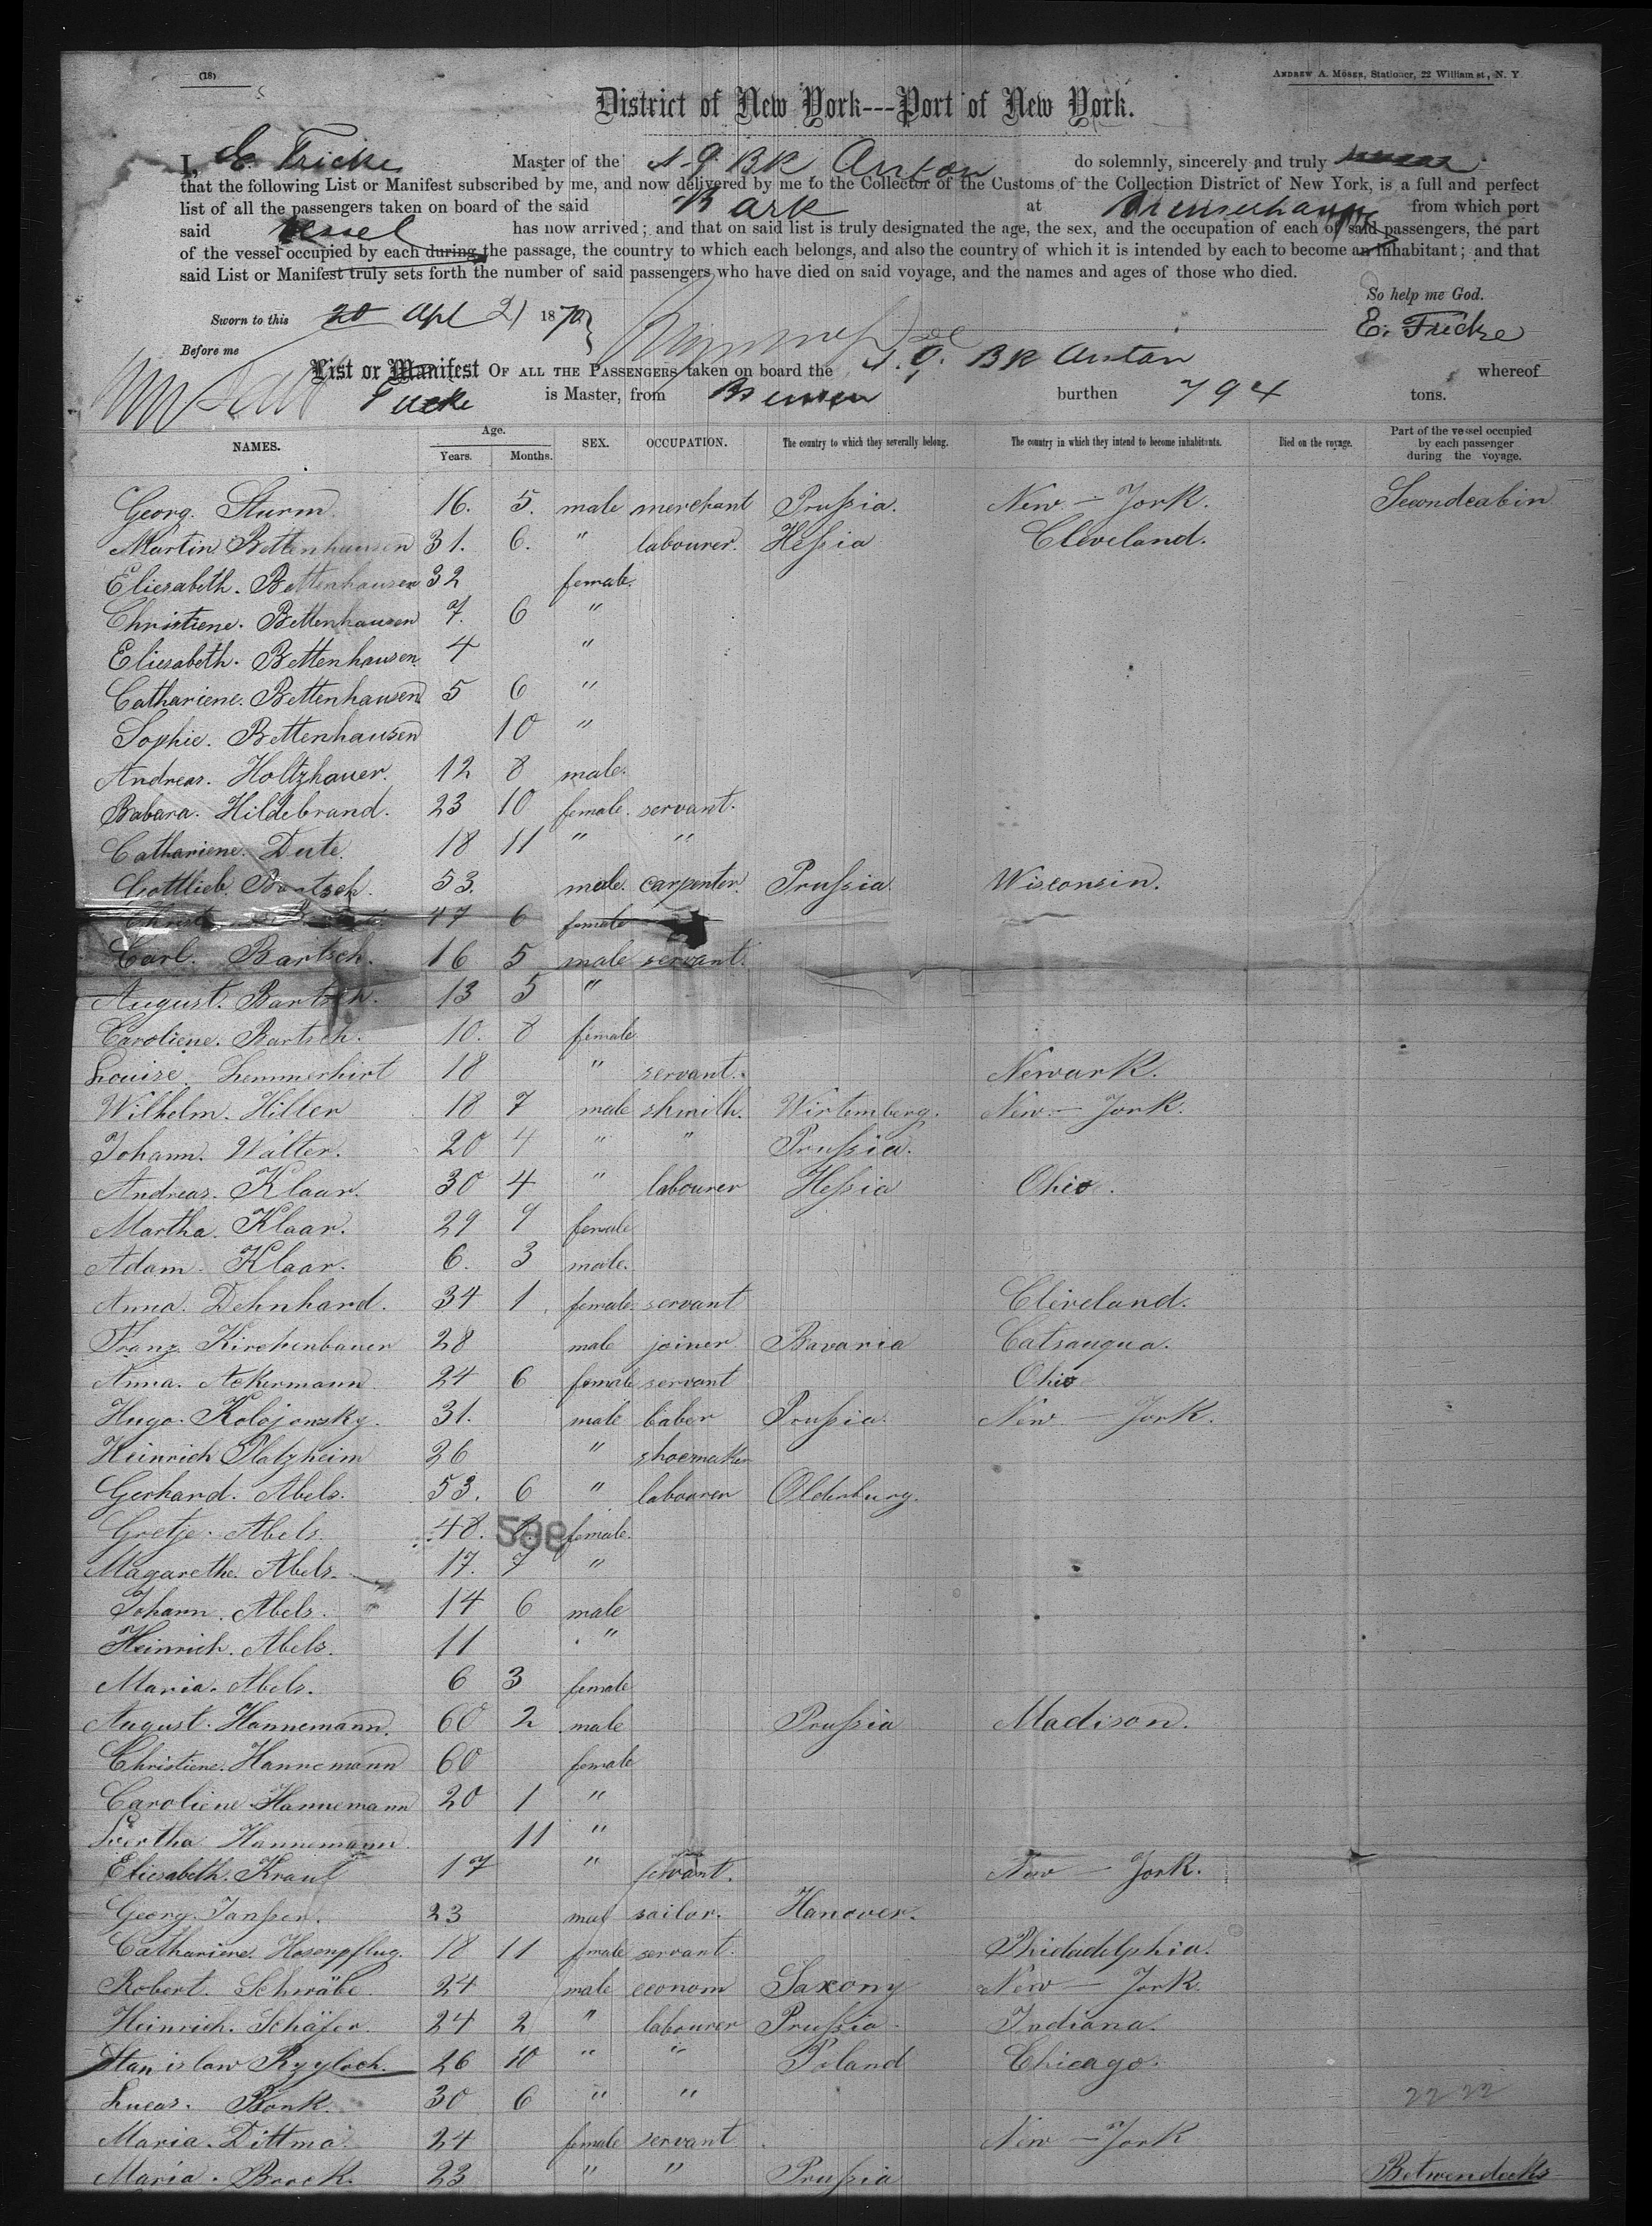 (18)
ANDREW A. MÖSER, Stationer, 22 William st, N. Y.
District of New York---Port of New York.
I, E. Fricke Master of the N. G. BK Anton do solemnly, sincerely and truly swear
that the following List or Manifest subscribed by me, and now delivered by me to the Collector of the Customs of the Collection District of New York, is a full and perfect
list of all the passengers taken on board of the said Bark at Bremerhaven from which port
said Vessel has now arrived; and that on said list is truly designated the age, the sex, and the occupation of each of said passengers, the part
of the vessel occupied by each during the passage, the country to which each belongs, and also the country of which it is intended by each to become an inhabitant; and that
said List or Manifest truly sets forth the number of said passengers who have died on said voyage, and the names and ages of those who died.
So help me God.
Sworn to this 20 Apl 21 1870 E. Fricke
Before me
List or Manifest OF ALL THE PASSENGERS taken on board the N. G. BK Anton whereof
Fricke is Master, from Bremen burthen 794 tons.
NAMES. Age. Years. Months. SEX. OCCUPATION. The country to which they severally belong. The country in which they intend to become inhabitants. Died on the voyage. Part of the vessel occupied by each passenger during the voyage.
Georg. Sturm. 16. 5. male merchant Prußia. New - York. Secondcabin
Martin Bettenhausen 31. 6. " labourer. Heßia Cleveland.
Eliesabeth. Bettenhausen 32 female.
Christiene. Bettenhausen 7. 6 "
Eliesabeth. Bettenhausen. 4 "
Cathariene. Bettenhausen 5 6 "
Sophie. Bettenhausen 10 "
Andreas. Holtzhauer. 12 8 male.
Babara. Hildebrand. 23 10 female. servant.
Cathariene. Dute. 18 11 " "
Gottlieb. Bartsch. 53. male. carpenter. Prußia Wisconsin.
47 6 female
Carl. Bartsch. 16 5 male servant.
August. Bartsch. 13 5 "
Caroliene. Bartsch. 10. 8 female
Louise. Lemmerhirt 18 " servant. Newark.
Wilhelm. Hiller 18 7 male shmith. Wirtemberg. New - York.
Johann. Walter. 20 4 " " Prußia.
Andreas. Klaar. 30 4 " labourer Heßia Ohio.
Martha. Klaar. 29 9 female
Adam. Klaar. 6. 3 male.
Anna. Dehnhard. 34 1 female. servant Cleveland.
Franz Kirchenbauer 28 male joiner Bavaria Catsauqua.
Anna. Ackermann 24 6 female servant Ohio
Hugo. Kolojonsky. 31. male baber Prußia. New - York.
Heinrich Platzheim 26 " shoemaker
Gerhard. Abels. 53. 6 " labourer Oldenburg.
Gretje. Abels. 48. 8. female.
588
Magarethe. Abels. 17. 7 "
Johann. Abels. 14 6 male
Heinrich. Abels. 11 "
Maria. Abels. 6 3 female
August. Hannemann. 60 2 male Prußia Madison.
Christiene. Hannemann 60 female
Caroliene. Hannemann 20 1 "
Hannemann 11 "
Eliesabeth. Kraul 17 " servant. New - York.
Georg. Janßen. 23 mal sailor. Hanover.
Cathariene. Hosenpflug. 18 11 female servant. Phidadelphia.
Robert. Schwäbe. 24 male econom Saxony New - York.
Heinrich. Schäfer. 24 2 " labourer Prußia. Indiana.
Stanislaw Ryyloch. 26 10 " " Poland Chicago.
Lucas. Bonk. 30 6 " "
22 22
Maria. Dittma. 24 female servant. New - York
Maria. Brock. 23 " " Prußia Betwendecks